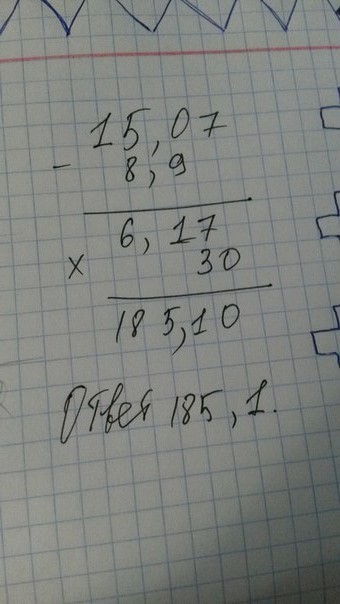 15,07
- 8,9
6,17
x 30
185,10
Ответ 185,1.